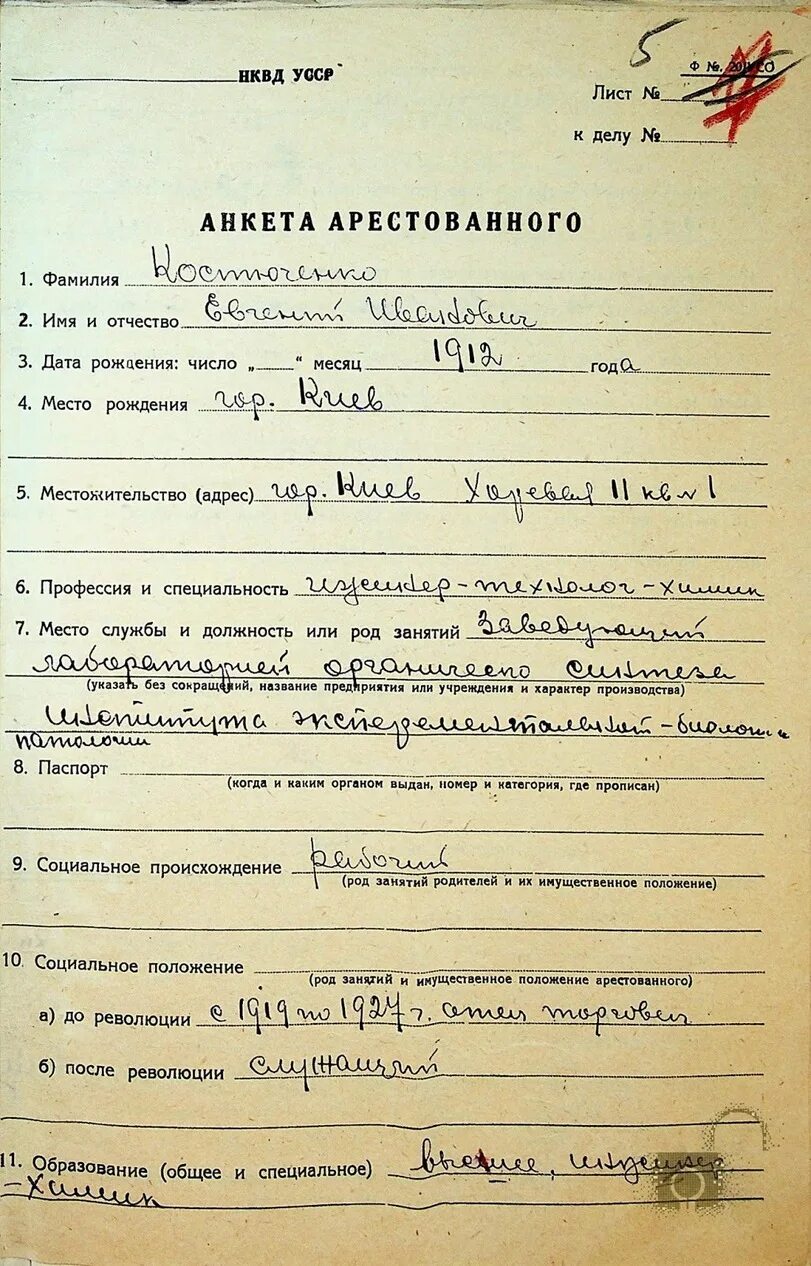 5
НКВД УССР
Ф № 20/УСО
Лист №
к делу №
АНКЕТА АРЕСТОВАННОГО
1. Фамилия Костюченко
2. Имя и отчество Евгений Иванович
3. Дата рождения: число „ “ месяц 1912 года
4. Место рождения гор. Киев
5. Местожительство (адрес) гор. Киев Хоревая 11 кв № 1
6. Профессия и специальность инженер-технолог-химик
7. Место службы и должность или род занятий Заведующий
лабораторией органическо синтеза
(указать без сокращений, название предприятия или учреждения и характер производства)
института экспериментальной-биологии
патологии
8. Паспорт
(когда и каким органом выдан, номер и категория, где прописан)
9. Социальное происхождение рабочий
(род занятий родителей и их имущественное положение)
10. Социальное положение
(род занятий и имущественное положение арестованного)
а) до революции с 1919 по 1927 г. отец торговец
б) после революции служащий
11. Образование (общее и специальное) высшее, инженер
-химик